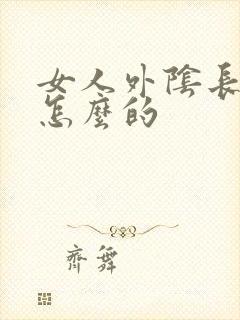 女人外陰長
怎麼的
齊舞